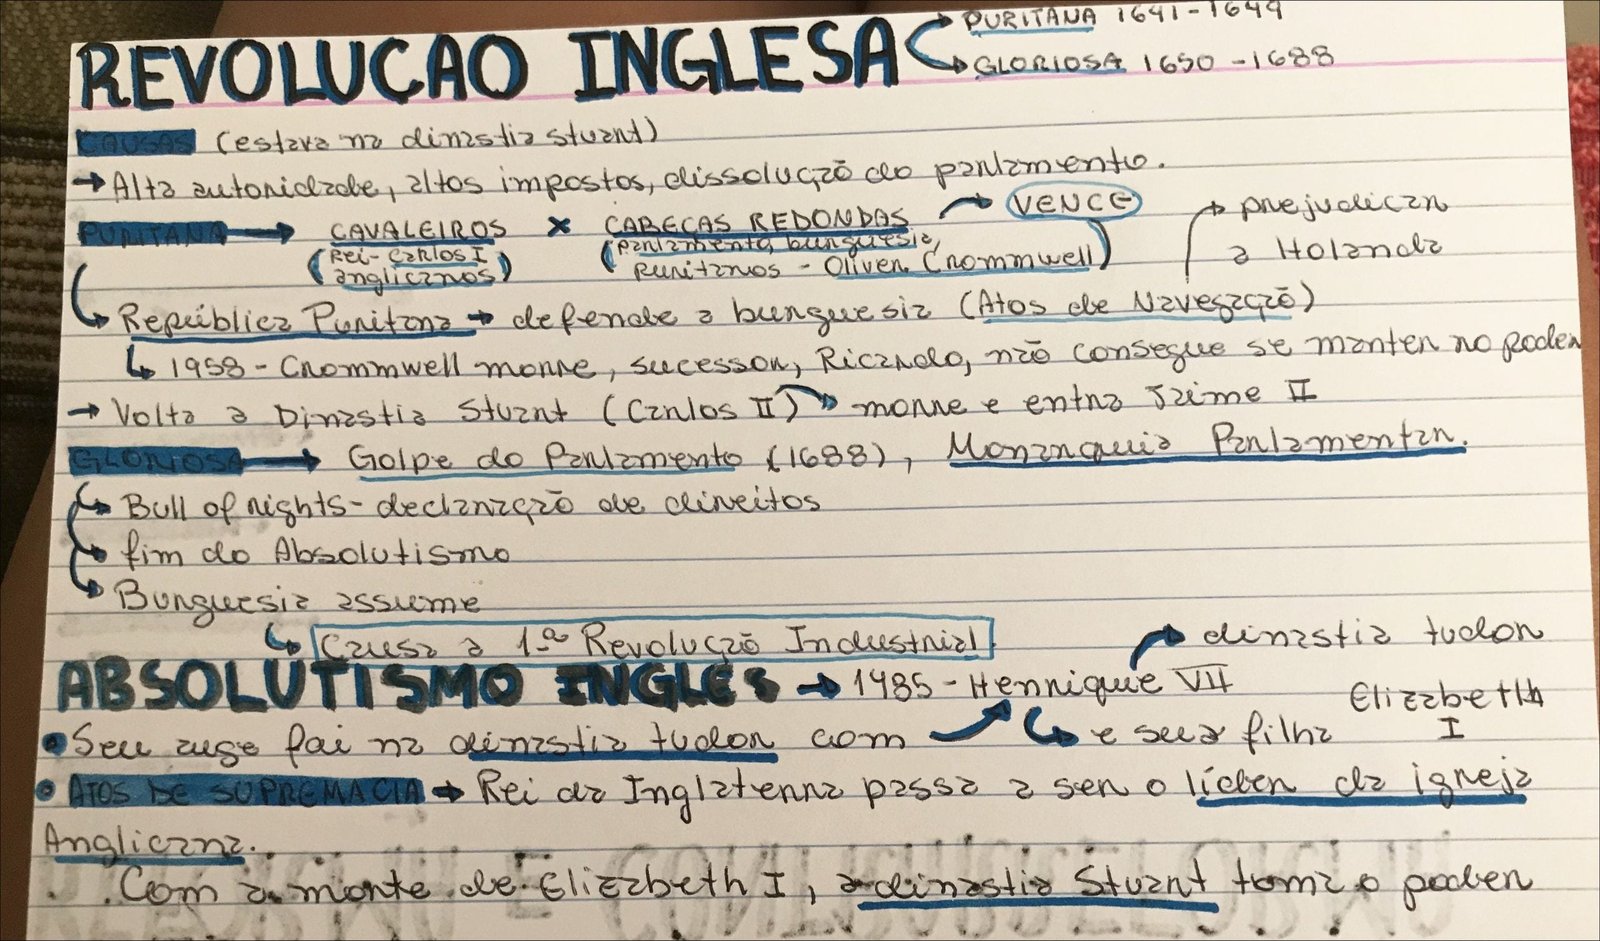 REVOLUCAO INGLESA
PURITANA 1641-1649
GLORIOSA 1650-1688
CAUSAS (estava na dinastia stuart)
→ Alta autoridade, altos impostos, dissolução do parlamento.
PURITANA → CAVALEIROS × CABECAS REDONDAS → VENCE
(Rei-Carlos I anglicanos)
(parlamento, burguesia, puritanos - Oliver Crommwell)
→ prejudicar a Holanda
República Puritana → defende a burguesia (Atos de Navegação)
1958 - Crommwell morre, sucessor, Ricardo, não consegue se manter no poder
→ Volta a Dinastia Stuart (Carlos II) → morre e entra Jaime II
GLORIOSA → Golpe do Parlamento (1688), Monarquia Parlamentar.
Bull of rights - declaração de direitos
fim do Absolutismo
Burguesia assume
Causa a 1ª Revolução Industrial
ABSOLUTISMO INGLES → 1485 - Henrique VII → dinastia tudor
• Seu auge foi na dinastia tudor com → e sua filha Elizabeth I
• ATOS DE SUPREMACIA → Rei da Inglaterra passa a ser o líder da igreja
Anglicana.
Com a morte de Elizabeth I, a dinastia Stuart toma o poder